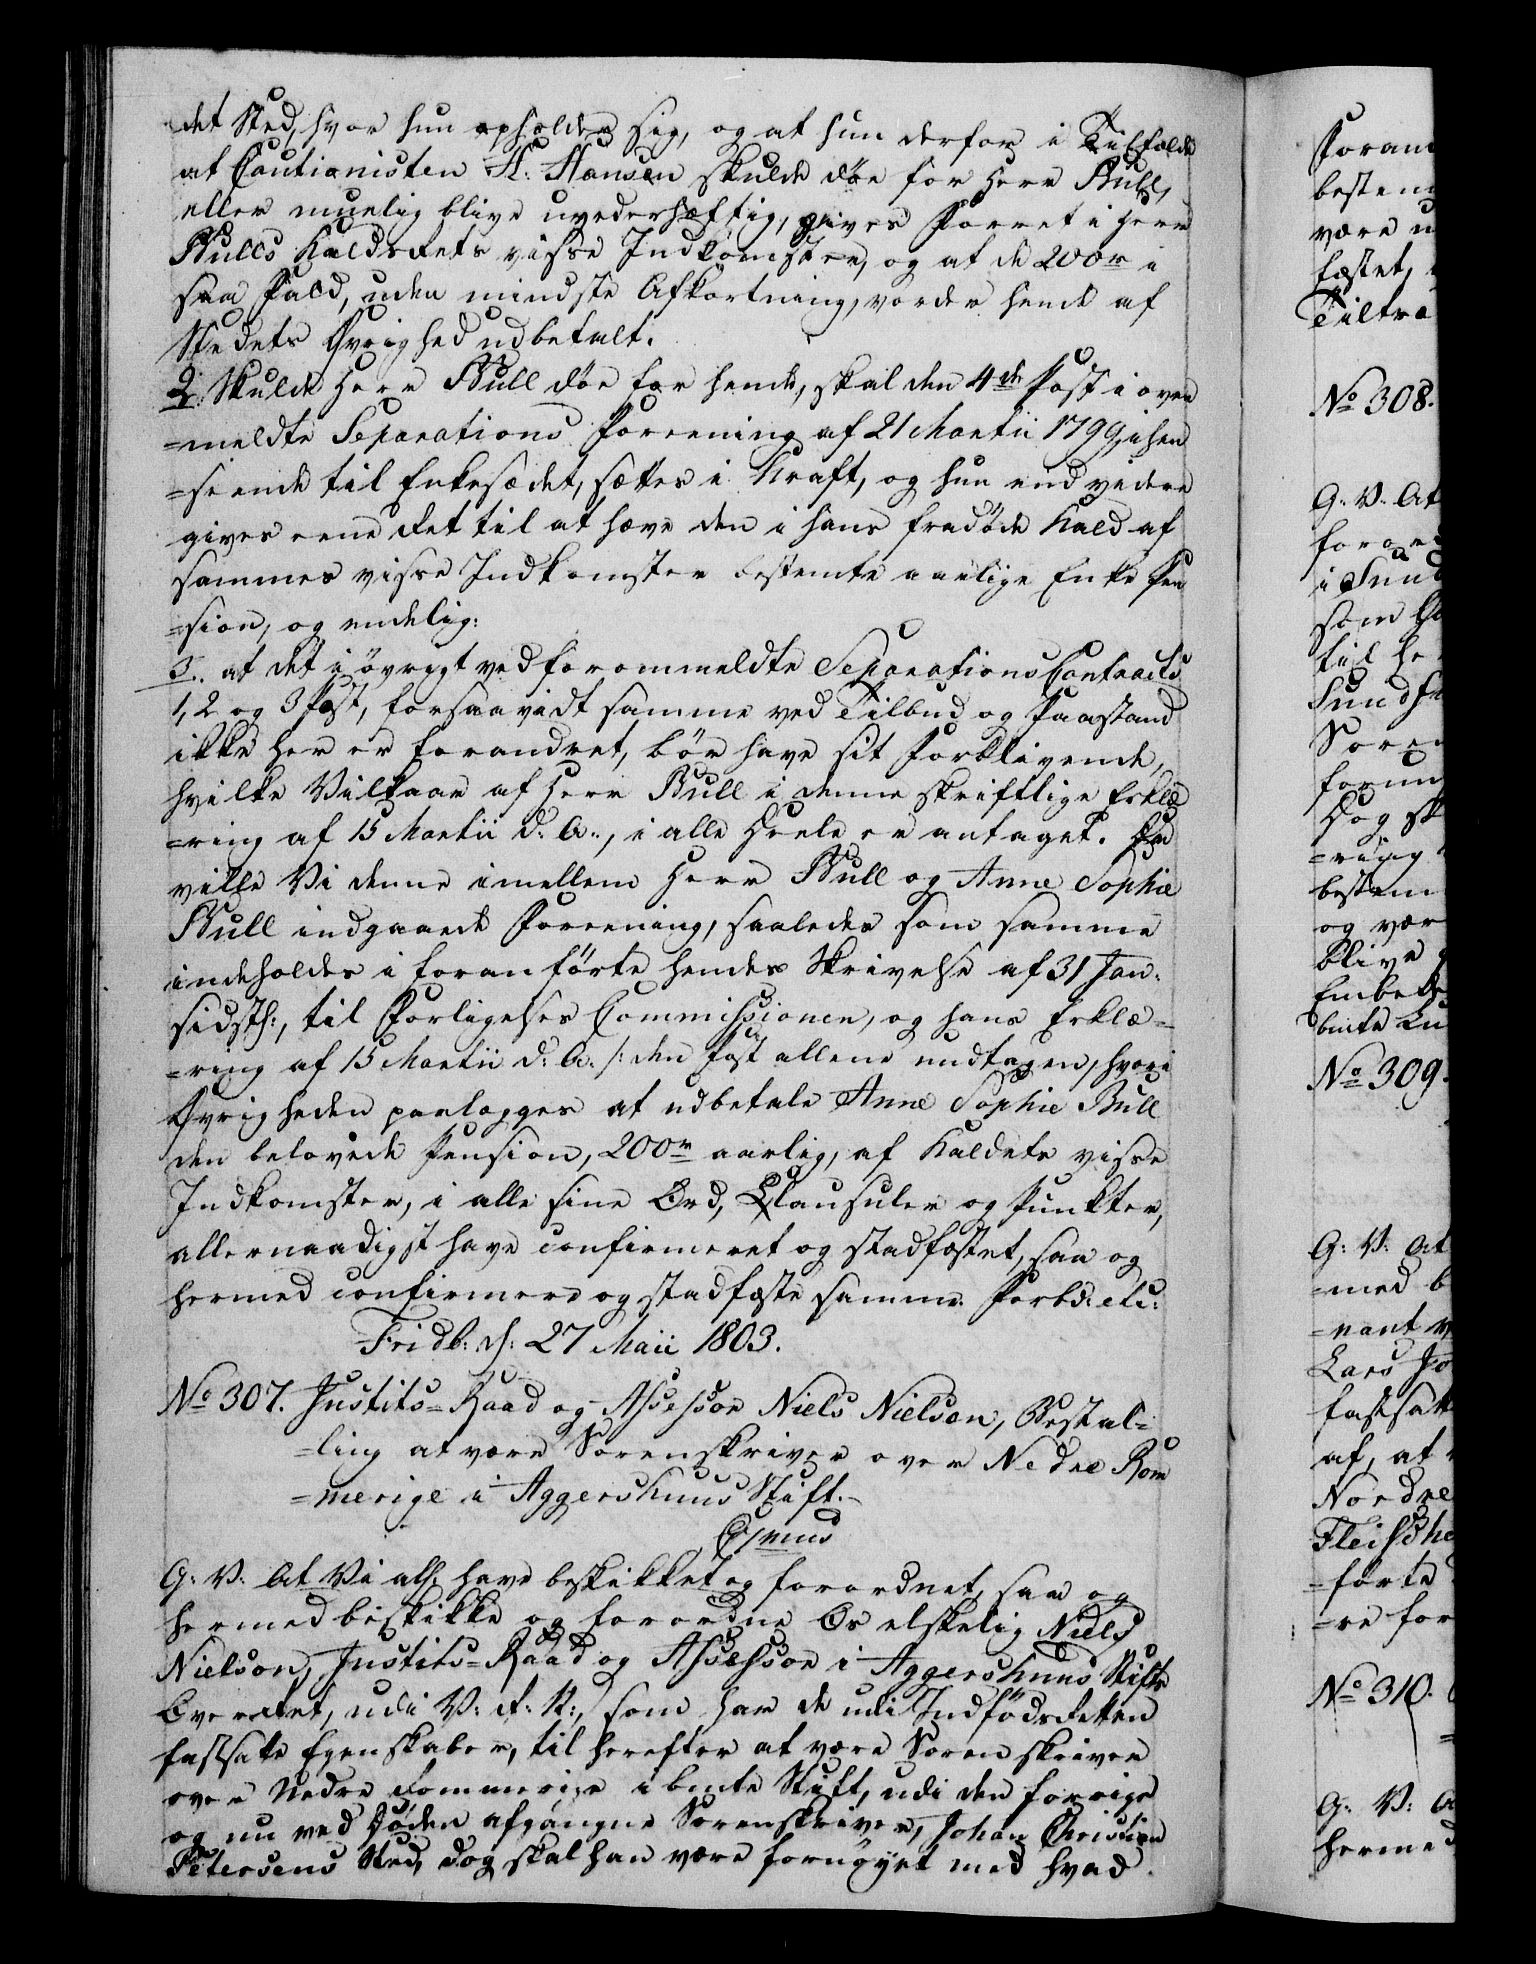 det Sted, hvor hun opholder sig, og at hun derfor i Tilfælde
at Cautionisten H: Hansen skulde døe for Herr Bull,
eller muelig blive uvederhæftig, gives Forret i Herr
Bulls Kalds Rets visse Indkomster, og at de 200 r i
saa Fald, uden mindste Afkortning, vorder hende af
Stedets Øvrighed udbetalt.
2. Skulde Herr Bull døe for hende, skal den 4de Post i oven
=meldte Separations Foreening af 21 Martii 1799, i hen
=seende til Enkesædet, sættes i Kraft, og hun end videre
gives eene Ret til at hæve den i hans fradöde Kald af
sammes visse Indkomster bestemte aarlige Enke Pen
=sion, og endelig:
3. at det i övrigt ved forommeldte Separations Contracts
1, 2 og 3 Post, forsaavidt samme ved Tilbud og Paastand
ikke her er forandret, bör have sit Forblivende,
hvilke Vilkaar af Herr Bull i denne skriftlige Erklæ
=ring af 15 Martii d: A:, i alle Deele er antaget. Da
ville Vi denne imellem Herr Bull og Anne Sophie
Bull indgaaede Foreening, saaledes som samme
indeholdes i foranförte hendes Skrivelse af 31 Jan:
sidstl:, til Forligelses Commissionen, og hans Erklæ=
=ring af 15 Martii d: A: /: den Post allene undtagen, hvori
Øvrigheden paalægges at udbetale Anne Sophie Bull
den belovede Pension, 200 r aarlig, af Kaldets visse
Indkomster, i alle sine Ord, Clausuler og Punkter,
allernaadigst have confirmeret og stadfæstet, saa og
hermed confirmere og stadfæste samme. Forbd: etc:
Fridb: d: 27 Maii 1803.
No 307. Justits=Raad og Assessor Niels Nielsen, Bestal=
=ling at være Sorenskriver over Nedre Rom
=merige i Aggershuus Stift.
G: V: At Vi all: have beskikket og forordnet, saa og
hermed beskikke og forordne Os elskelig Niels
Nielson, Justits=Raad og Assessor i Aggershuus Stifts
Overret, udi V: R: N:, som har de udi Indfödsretten
fastsatte Egenskaber, til herefter at være Sorenskriver
over Nedre Rommerige i bmte Stift, udi den forrige
og nu ved Döden afgangne Sorenskriver, Johan Christian
Petersens Sted, dog skal han være fornöyet med hvad
Foran
bestem
være u
fæstet,
Tiltræ
No 308.
G. V. At
foror
i Sund
som
til he
Sundh
Soren
forun
Dog sk
=ring
bestem
og vær
blive
Embed
bmte
No 309.
G: V: At
=med b
=nant
Lars Jo
fastsatt
af, at
Nordre
Fleische
=förte
=re for
No 310.
G: V:
hermed